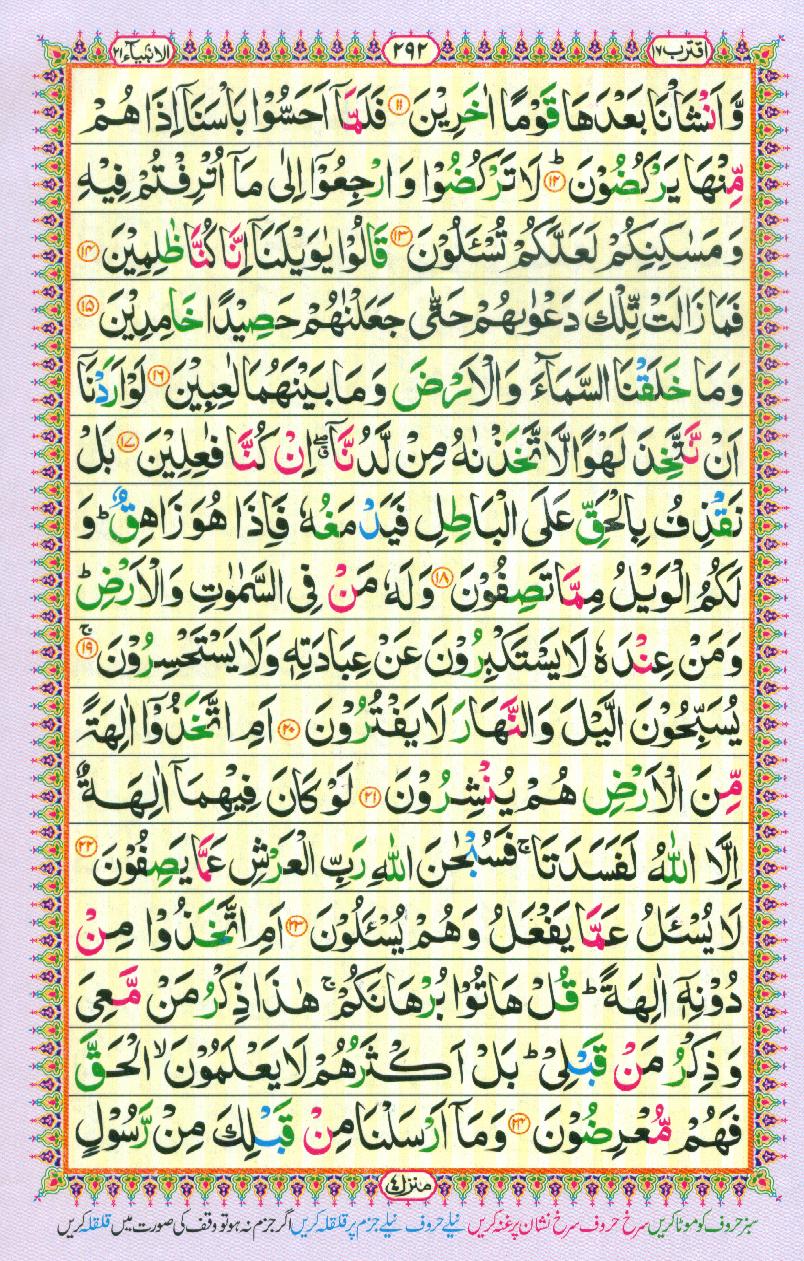 اقترب ١٧
٢٩٢
الانبیآء ٢١
وَّ اَنْشَاْنَا بَعْدَهَا قَوْمًا اٰخَرِیْنَ ۝۱۱ فَلَمَّاۤ اَحَسُّوْا بَاْسَنَاۤ اِذَا هُمْ
مِّنْهَا یَرْكُضُوْنَ ؕ۝۱۲ لَا تَرْكُضُوْا وَ ارْجِعُوْۤا اِلٰى مَاۤ اُتْرِفْتُمْ فِیْهِ
وَ مَسٰكِنِكُمْ لَعَلَّكُمْ تُسْـَٔلُوْنَ ۝۱۳ قَالُوْا یٰوَیْلَنَاۤ اِنَّا كُنَّا ظٰلِمِیْنَ ۝۱۴
فَمَا زَالَتْ تِّلْكَ دَعْوٰىهُمْ حَتّٰى جَعَلْنٰهُمْ حَصِیْدًا خَامِدِیْنَ ۝۱۵
وَ مَا خَلَقْنَا السَّمَآءَ وَ الْاَرْضَ وَ مَا بَیْنَهُمَا لٰعِبِیْنَ ۝۱۶ لَوْ اَرَدْنَاۤ
اَنْ نَّتَّخِذَ لَهْوًا لَّا تَّخَذْنٰهُ مِنْ لَّدُنَّاۤ ۖۗ اِنْ كُنَّا فٰعِلِیْنَ ۝۱۷ بَلْ
نَقْذِفُ بِالْحَقِّ عَلَى الْبَاطِلِ فَیَدْمَغُهٗ فَاِذَا هُوَ زَاهِقٌ ؕ وَ
لَكُمُ الْوَیْلُ مِمَّا تَصِفُوْنَ ۝۱۸ وَ لَهٗ مَنْ فِی السَّمٰوٰتِ وَ الْاَرْضِ ؕ
وَ مَنْ عِنْدَهٗ لَا یَسْتَكْبِرُوْنَ عَنْ عِبَادَتِهٖ وَ لَا یَسْتَحْسِرُوْنَ ۚ۝۱۹
یُسَبِّحُوْنَ الَّیْلَ وَ النَّهَارَ لَا یَفْتُرُوْنَ ۝۲۰ اَمِ اتَّخَذُوْۤا اٰلِهَةً
مِّنَ الْاَرْضِ هُمْ یُنْشِرُوْنَ ۝۲۱ لَوْ كَانَ فِیْهِمَاۤ اٰلِهَةٌ
اِلَّا اللّٰهُ لَفَسَدَتَا ۚ فَسُبْحٰنَ اللّٰهِ رَبِّ الْعَرْشِ عَمَّا یَصِفُوْنَ ۝۲۲
لَا یُسْـَٔلُ عَمَّا یَفْعَلُ وَ هُمْ یُسْـَٔلُوْنَ ۝۲۳ اَمِ اتَّخَذُوْا مِنْ
دُوْنِهٖۤ اٰلِهَةً ؕ قُلْ هَاتُوْا بُرْهَانَكُمْ ۚ هٰذَا ذِكْرُ مَنْ مَّعِیَ
وَ ذِكْرُ مَنْ قَبْلِیْ ؕ بَلْ اَكْثَرُهُمْ لَا یَعْلَمُوْنَ ۙ الْحَقَّ
فَهُمْ مُّعْرِضُوْنَ ۝۲۴ وَ مَاۤ اَرْسَلْنَا مِنْ قَبْلِكَ مِنْ رَّسُوْلٍ
منزل ٤
سبز حروف کو موٹا کریں سرخ حروف سرخ نشان پر غنہ کریں نیلے حروف نیلے جزم پر قلقلہ کریں اگر جزم نہ ہو تو وقف کی صورت میں قلقلہ کریں